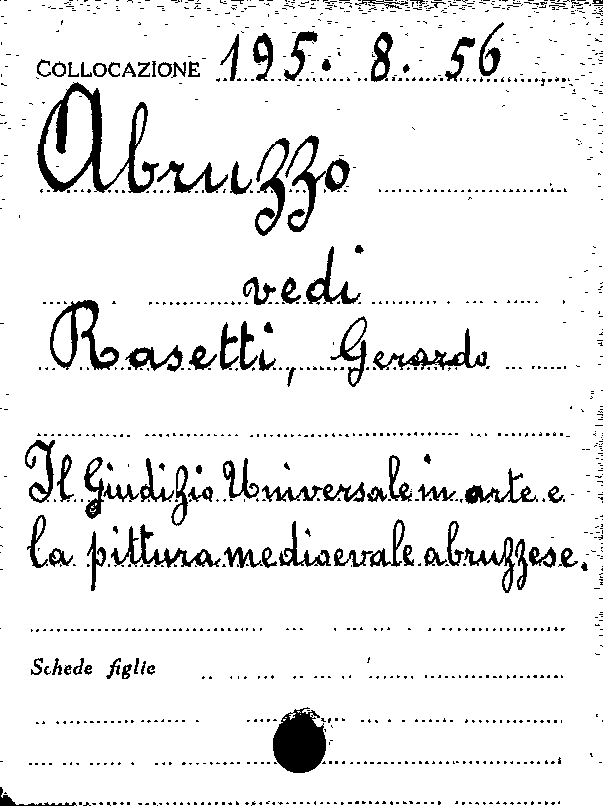 COLLOCAZIONE 195. 8. 56
Abruzzo
vedi
Rasetti, Gerardo
Il Giudizio Universale in arte e
la pittura medioevale abruzzese.
Schede figlie